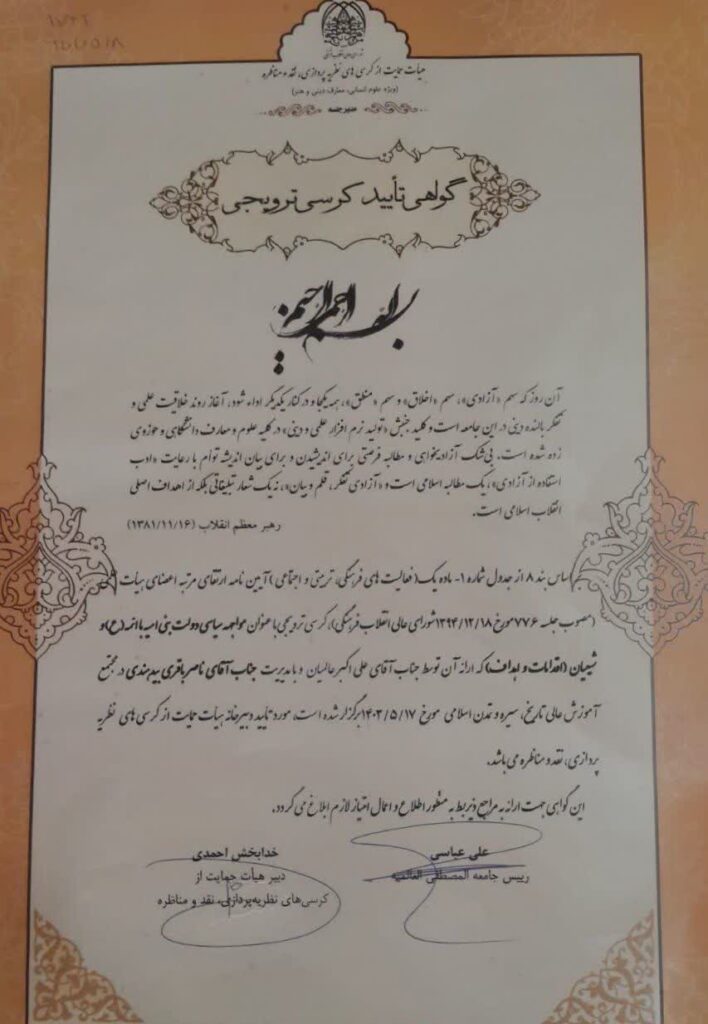 هیأت حمایت از کرسی های نظریه پردازی، نقد و مناظره
(ویژه علوم انسانی، معارف دینی و هنر)
مدیر جلسه
گواهی تأیید کرسی ترویجی
بسم الله الرحمن الرحیم
آن روز که سهم «آزادی»، سهم «اخلاق» و سهم «منطق»، همه یکجا و در کنار یکدیگر اداء شود، آغاز روند خلاقیت علمی و
تفکر بالنده دینی در این جامعه است و کلید جنبش «تولید نرم افزار علمی و دینی» در کلیه علوم و معارف دانشگاهی و حوزوی
زده شده است. بی‌شک آزادیخواهی و مطالبه فرصتی برای اندیشیدن و برای بیان اندیشه توأم با رعایت «ادب
استفاده از آزادی»، یک مطالبه اسلامی است و «آزادی تفکر، قلم و بیان»، نه یک شعار تبلیغاتی بلکه از اهداف اصلی
انقلاب اسلامی است.
رهبر معظم انقلاب (۱۳۸۱/۱۱/۱۶)
ساس بند ۸ از جدول شماره ۱- ماده یک( فعالیت های فرهنگی، تربیتی و اجتماعی ) آیین نامه ارتقای مرتبه اعضای هیأت
(مصوب جلسه ۷۷۶ مورخ ۱۳۹۴/۱۲/۱۸ شورای عالی انقلاب فرهنگی)، کرسی ترویجی با عنوان مواجهه سیاسی دولت بنی امیه با ائمه (ع) و
شیعیان (اقدامات و اهداف) که ارائه آن توسط جناب آقای علی اکبر عالمیان و با مدیریت جناب آقای ناصر باقری بیدهندی در مجتمع
آموزش عالی تاریخ، سیره و تمدن اسلامی مورخ ۱۴۰۳/۵/۱۷ برگزار شده است، مورد تأیید دبیرخانه هیأت حمایت از کرسی های نظریه
پردازی، نقد و مناظره می باشد.
این گواهی جهت ارائه به مراجع ذیربط به منظور اطلاع و اعمال امتیاز لازم ابلاغ می گردد.
علی عباسی
رییس جامعه المصطفی العالمیه
خدابخش احمدی
دبیر هیأت حمایت از
کرسی‌های نظریه‌پردازی، نقد و مناظره